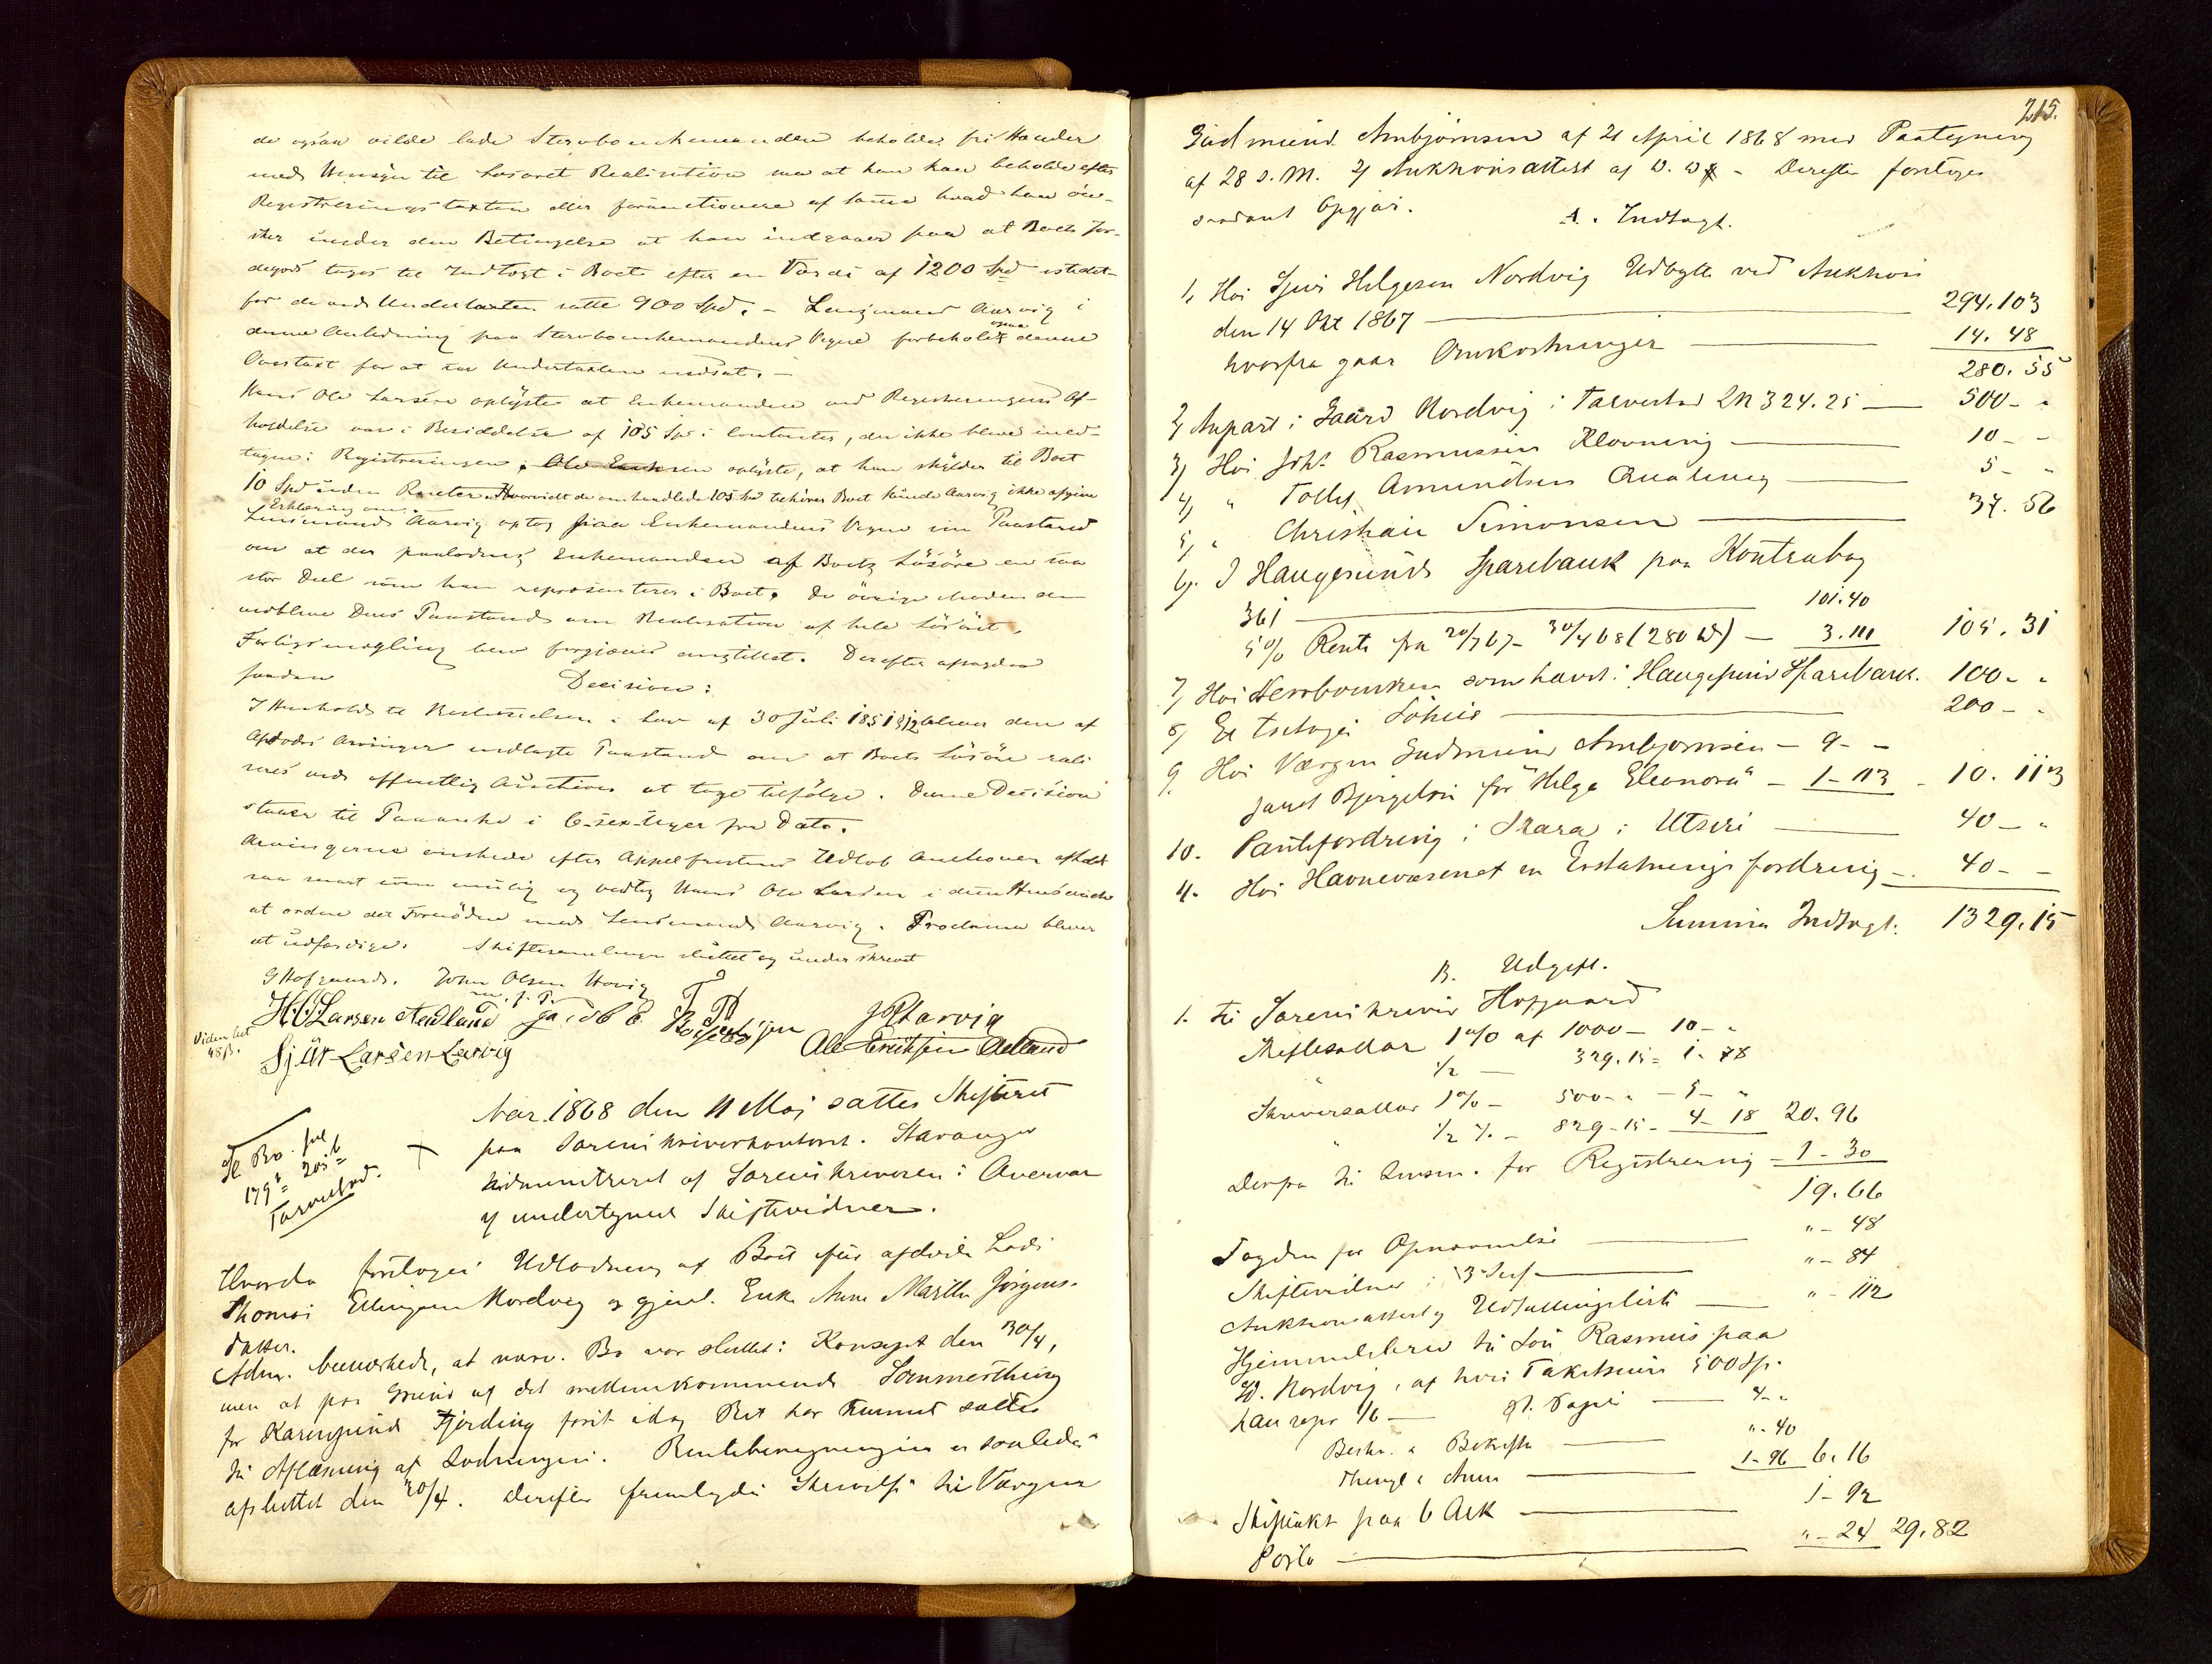 de ogsaa vilde lade Stervboenkemanden beholde fri Hænder
med Hensyn til Løsøret Realisation saa at han kan beholde efter
Registreringstaxten eller forauctionere af samme hvad han øn-
sker under den Betingelse at han indgaaer paa at Boets Jor-
degods tages til Indtægt i Boet efter en Værdi af 1200 Spd istedet-
for de ved Undertaxten satte 900 Spd. – Lensmand Aarvig i
denne Anledning paa Stervboenkemandens Vegne forbeholdt denne
Overtaxt for at faa Undertaxten nedsat. –
Hans Ole Larsen oplyste at Enkemanden ved Registreringens Af-
holdelse var i Besiddelse af 105 Spd i Contanter, der ikke bleve ind-
tagne i Registreringen. Ole Eriksen oplyste, at han skylder til Boet
10 Spd uden Renter. Hvorvidt de omhandlede 105 Spd tilhører Boet kunde Aarvig ikke afgive
Erklæring om.
Lensmand Aarvig optog paa Enkemandens Vegne sin Paastand
om at der paalodnes Enkemanden af Boets Løsøre en saa
stor Deel som han repræsenterer i Boet. De øvrige Mødende
vedbleve Deres Paastand om Realisation af hele Løsøret.
Forligsmægling blev forgjæves anstillet. Derefter afsagdes
saadan
Decision:
I Henhold til Bestemmelsen i Lov af 30 Juli 1851 § 12 bliver den af
Afdødes Arvinger nedlagte Paastand om at Boets Løsøre reali
seres ved offentlig Auction at tage tilfølge. Denne Decision
staaer til Paaanke i 6-sex-Uger fra Dato.
Arvingerne ønskede efter Appelfristens Udløb Auctionen afholdt
saa snart som mulig og vedtog Hans Ole Larsen i dette Hensende
at ordne det Fornødne med Lensmand Aarvig. Proclama bliver
at udfærdige. Skiftesamlingen sluttet og underskrevet
G Hofgaard. John Olsen Hovig
m. f. P.
H. O Larsen Aadland Jacob E. T. T. Rossebø J R Aarvig
Videnhet
48 β.
Sjúr Larsen Lervig Ole Eriksen Aadland
Aar 1868 den 11 Maj sattes Skifteret
paa Sorenskriverkontoret i Stavanger
Administreret af Sorenskriveren i Overvær
af undertegnede Skiftevidner.
Bo. fol
179 205
Torvestad.
Hvorda foretoges Udlodning af Boet efter afdøde Lods
Thomas Ellingsen Nordvig og gjenl. Enke Anne Martha Jørgens-
datter.
Adm. bemærkede, at nærv. Bo var sluttet i Konsept den 30/4,
men at paa Grund af det mellemkommende Sommerthing
for Karmsunds Fjerding først idag Ret har kunnet sættes
til Aflæsning af Lodningen. Renteberegningen er saaledes
afsluttet den 30/4. Derefter fremlagdes Skrivelse til Værgen
215.
Gudmund Ambjørnsen af 21 April 1868 med Paategning
af 28 s. M. og Auktionsattest af D. D. – Derefter foretoges
saadant Opgjør.
A. Indtægt.
1, Hos Sjur Helgesen Nordvig Udbytte ved Auktion
den 14 Okt 1867 — 294.103
hvorfra gaar Omkostninger — 14. 48
280. 55
2, Anpart i Gaard Nordvig i Torvestad LN 324.25 — 500 – "
3, Hos Johs Rasmussen Klovning — 10 – –
4, " Tollef Amundsen Qvalevaag — 5 – "
5, " Christian Simonsen — 37. 56
6. I Haugesunds Sparebank paa Kontrabog
361 — 101.40
5% Rente fra 20/7 67 – 30/4 68 (280 D) — 3. 111 105. 31
7, Hos Stervboenken som hævet i Haugesunds Sparebank. 100 – "
8, Et Tschoges Søhus — 200 – "
9. Hos Værgen Gudmund Ambjørnsen – 9 – –
samt Bjergeløn for "Helga Eleonora" – 1 – 113 – 10. 113
10. Panteforдring i Skara i Utsire — 40 – "
11. Hos Havnevæsenet en Erstatningsfordring – 40 – –
Summa Indtægt: 1329.15
B. Udgift.
1. til Sorenskriver Hofgaard
Skiftesallar 1% af 1000 – 10 – "
1/2 — 329.15 = 1. 78
Skriversallar 1% – 500 – " – 5 – "
1/2 % – 829–15 – 4 – 18 20. 96
Derfra til Lensm. for Registrering – 1 – 30
19. 66
Fogden for Opnævnelse — " – 48
Skiftevidner i 3 Ses — " – 84
Auktionsattest og Udlodningsliste — " – 112
Hjemmelsbrev til Søn Rasmus paa
Gd. Nordvig, af hvis Taxtsum 500 Sp.
han repr 1/6 — gl. Papir — 4 – "
Beskr. & Bekræft — " – 40
Thingl & Ann — 1 – 96 6. 16
Skifteakt paa 6 Ark — 1 – 92
Porto — " – 24 29. 82